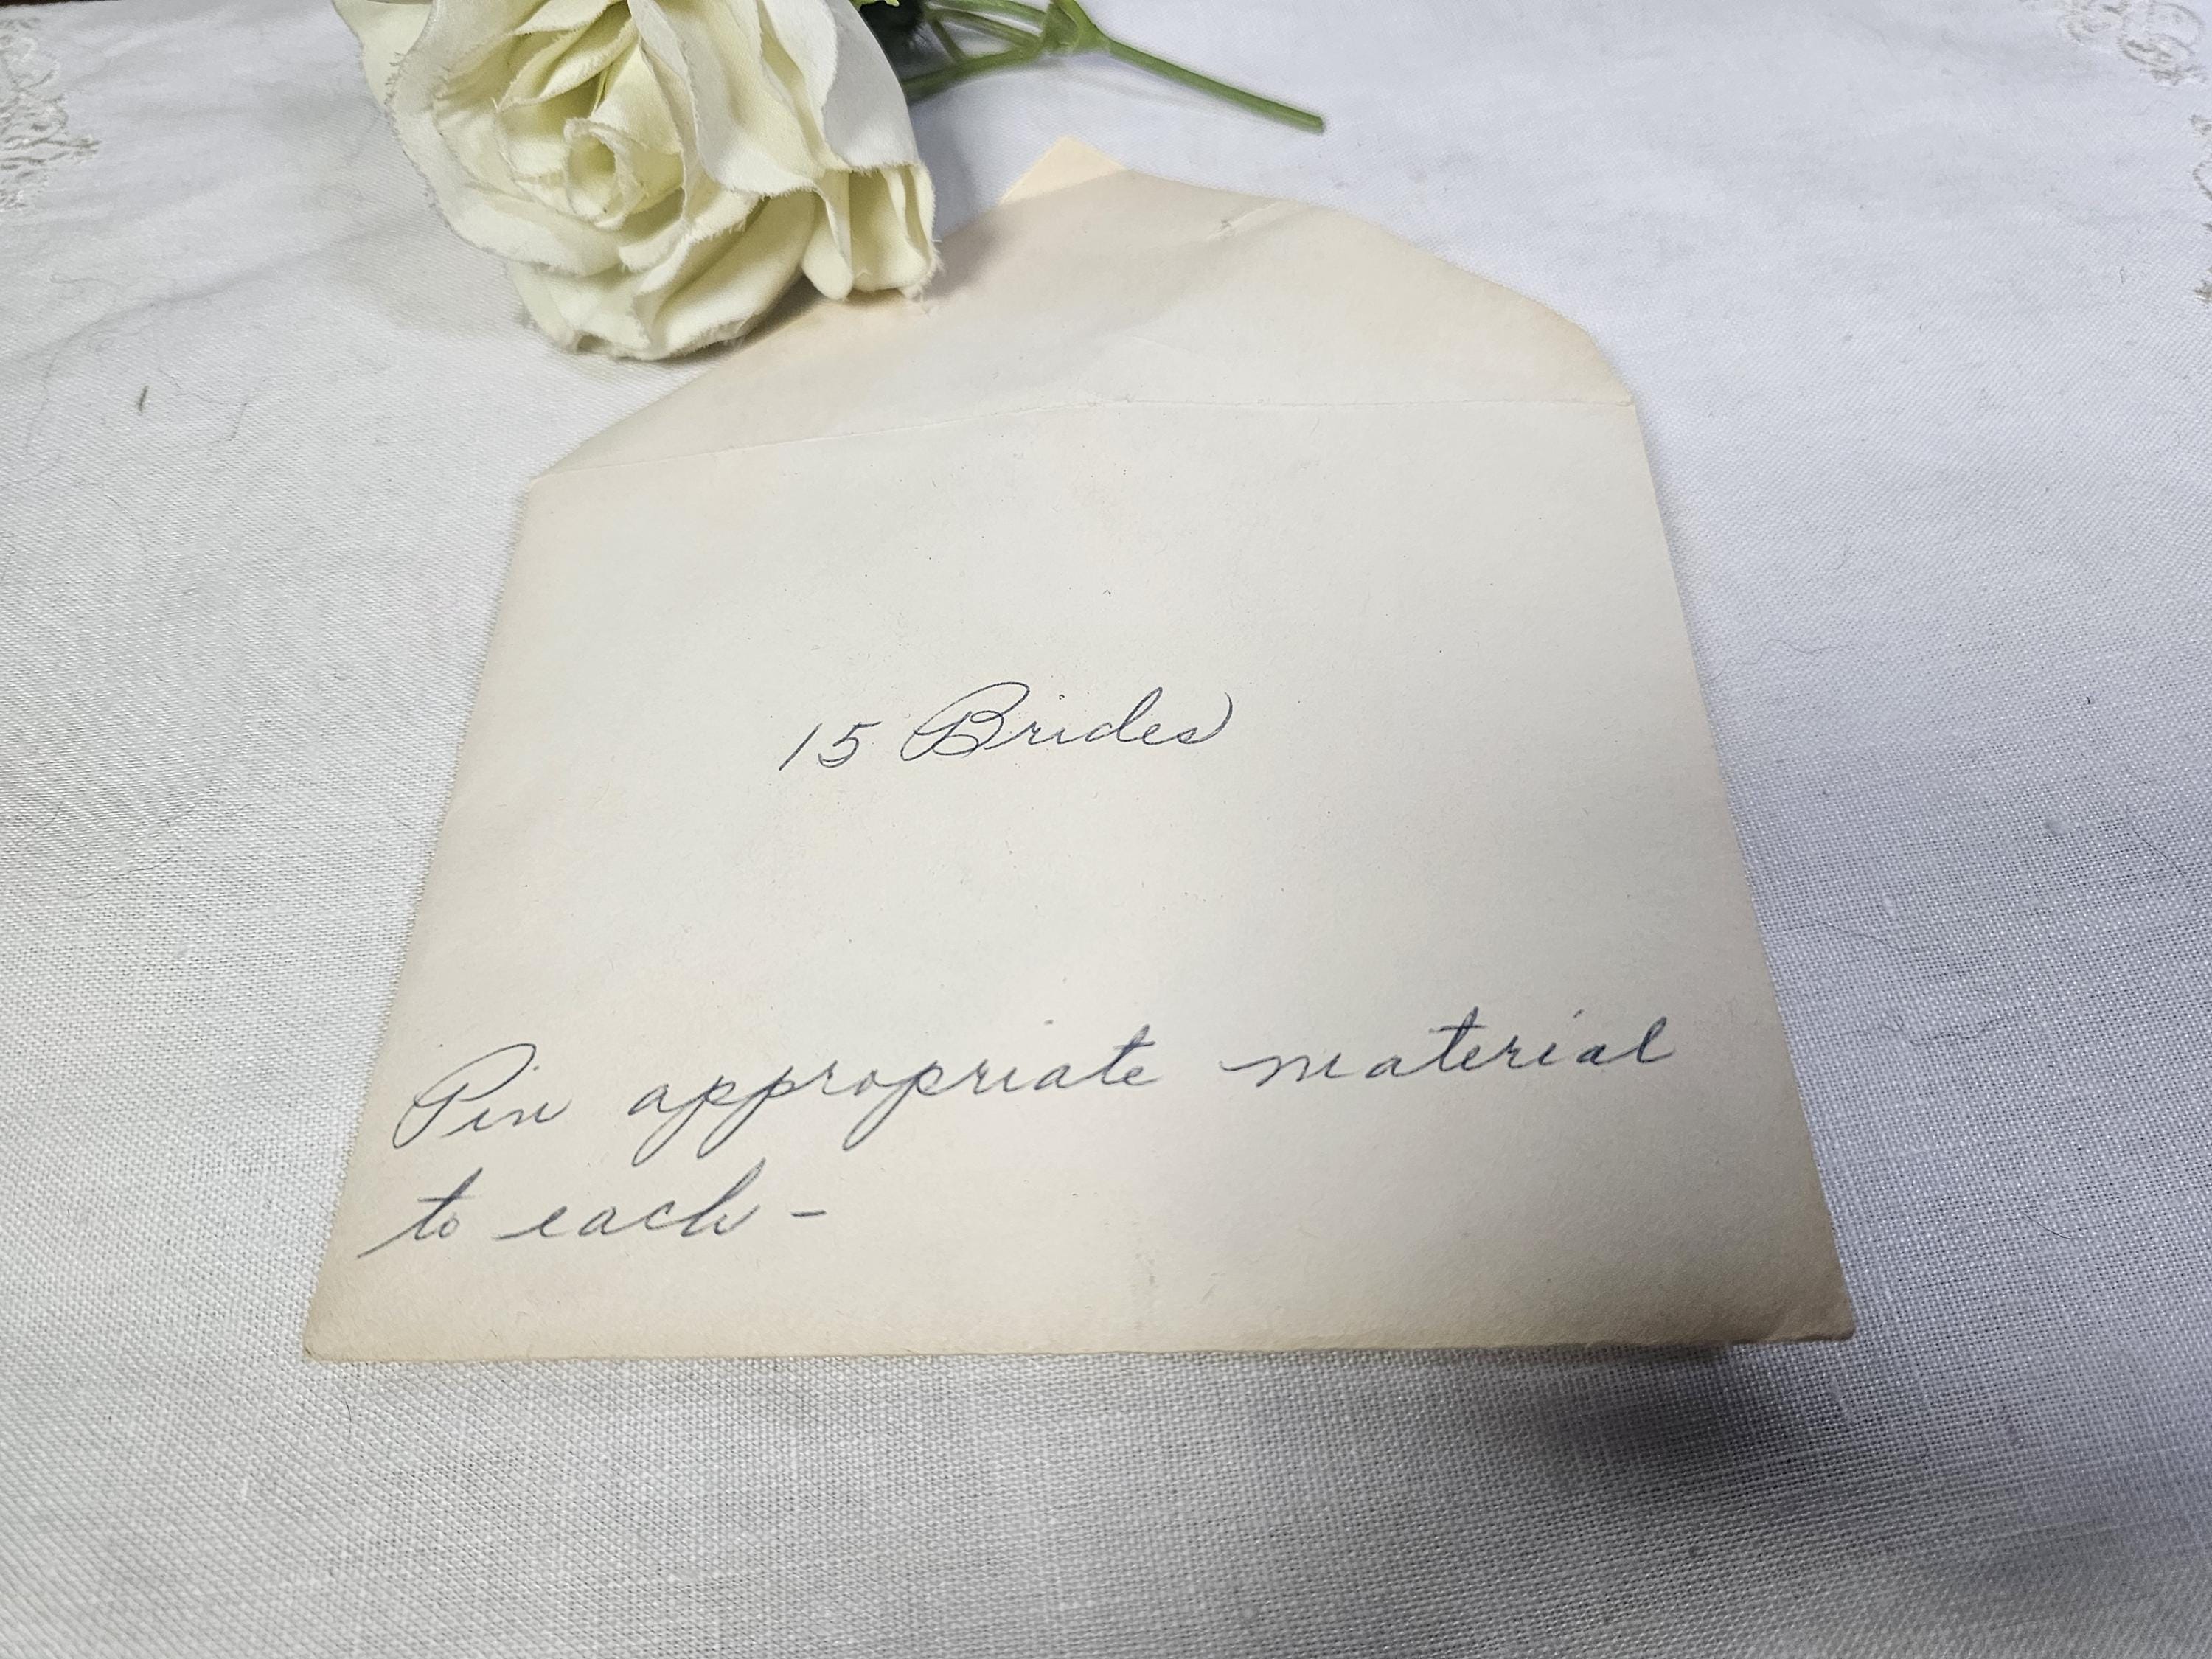 15 Brides
Pin appropriate material
to each -